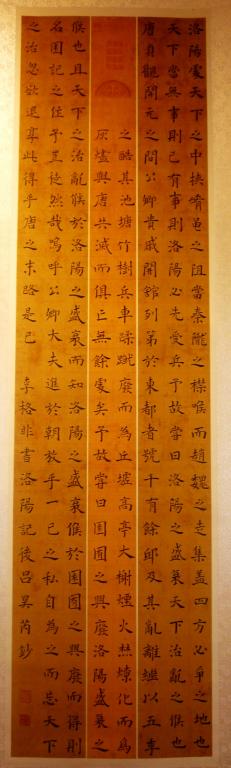 洛陽處天下之中挾崤黽之阻當秦隴之襟喉而趙魏之走集蓋四方必爭之地也
天下當無事則已有事則洛陽必先受兵予故嘗曰洛陽之盛衰天下治亂之候也
唐貞觀開元之間公卿貴戚開館列第於東都者號千有餘邸及其亂離繼以五季
之酷其池塘竹樹兵車蹂蹴廢而為丘墟高亭大榭煙火焚燎化而為
灰燼與唐共滅而俱亡無餘處矣予故嘗曰園囿之興廢洛陽盛衰之
候也且天下之治亂候於洛陽之盛衰而知洛陽之盛衰候於園囿之興廢而得則
名園記之作予豈徒然哉嗚呼公卿大夫進於朝放乎一己之私自為之而忘天下
之治忽欲退享此得乎唐之末路是已 李格非書洛陽記後呂昊芮鈔